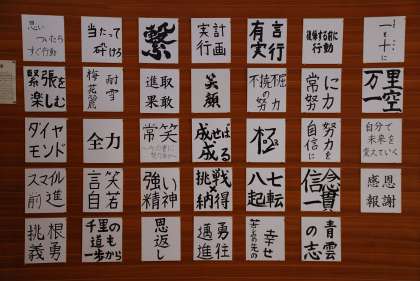 思い
ついたら
すぐ行動
当たって
砕けろ
繋
実行
計画
有言
実行
後悔する前に
行動
一を
十に
緊張を
楽しむ
耐雪
梅花麗
進取
果敢
笑顔
不撓不屈
の努力
常に
努力
万里
空
ダイヤ
モンド
全力
常笑
成せば
成る
極
努力を
自信に
自分で
未来を
変えていく
スマイル
前進
言笑
自若
強い
精神
挑戦
×
納得
七転
八起
信
感恩
報謝
挑
義
根
勇
千里の
道も
一歩から
恩返し
勇往
邁進
苦しみの先の
幸せ
青雲
の志